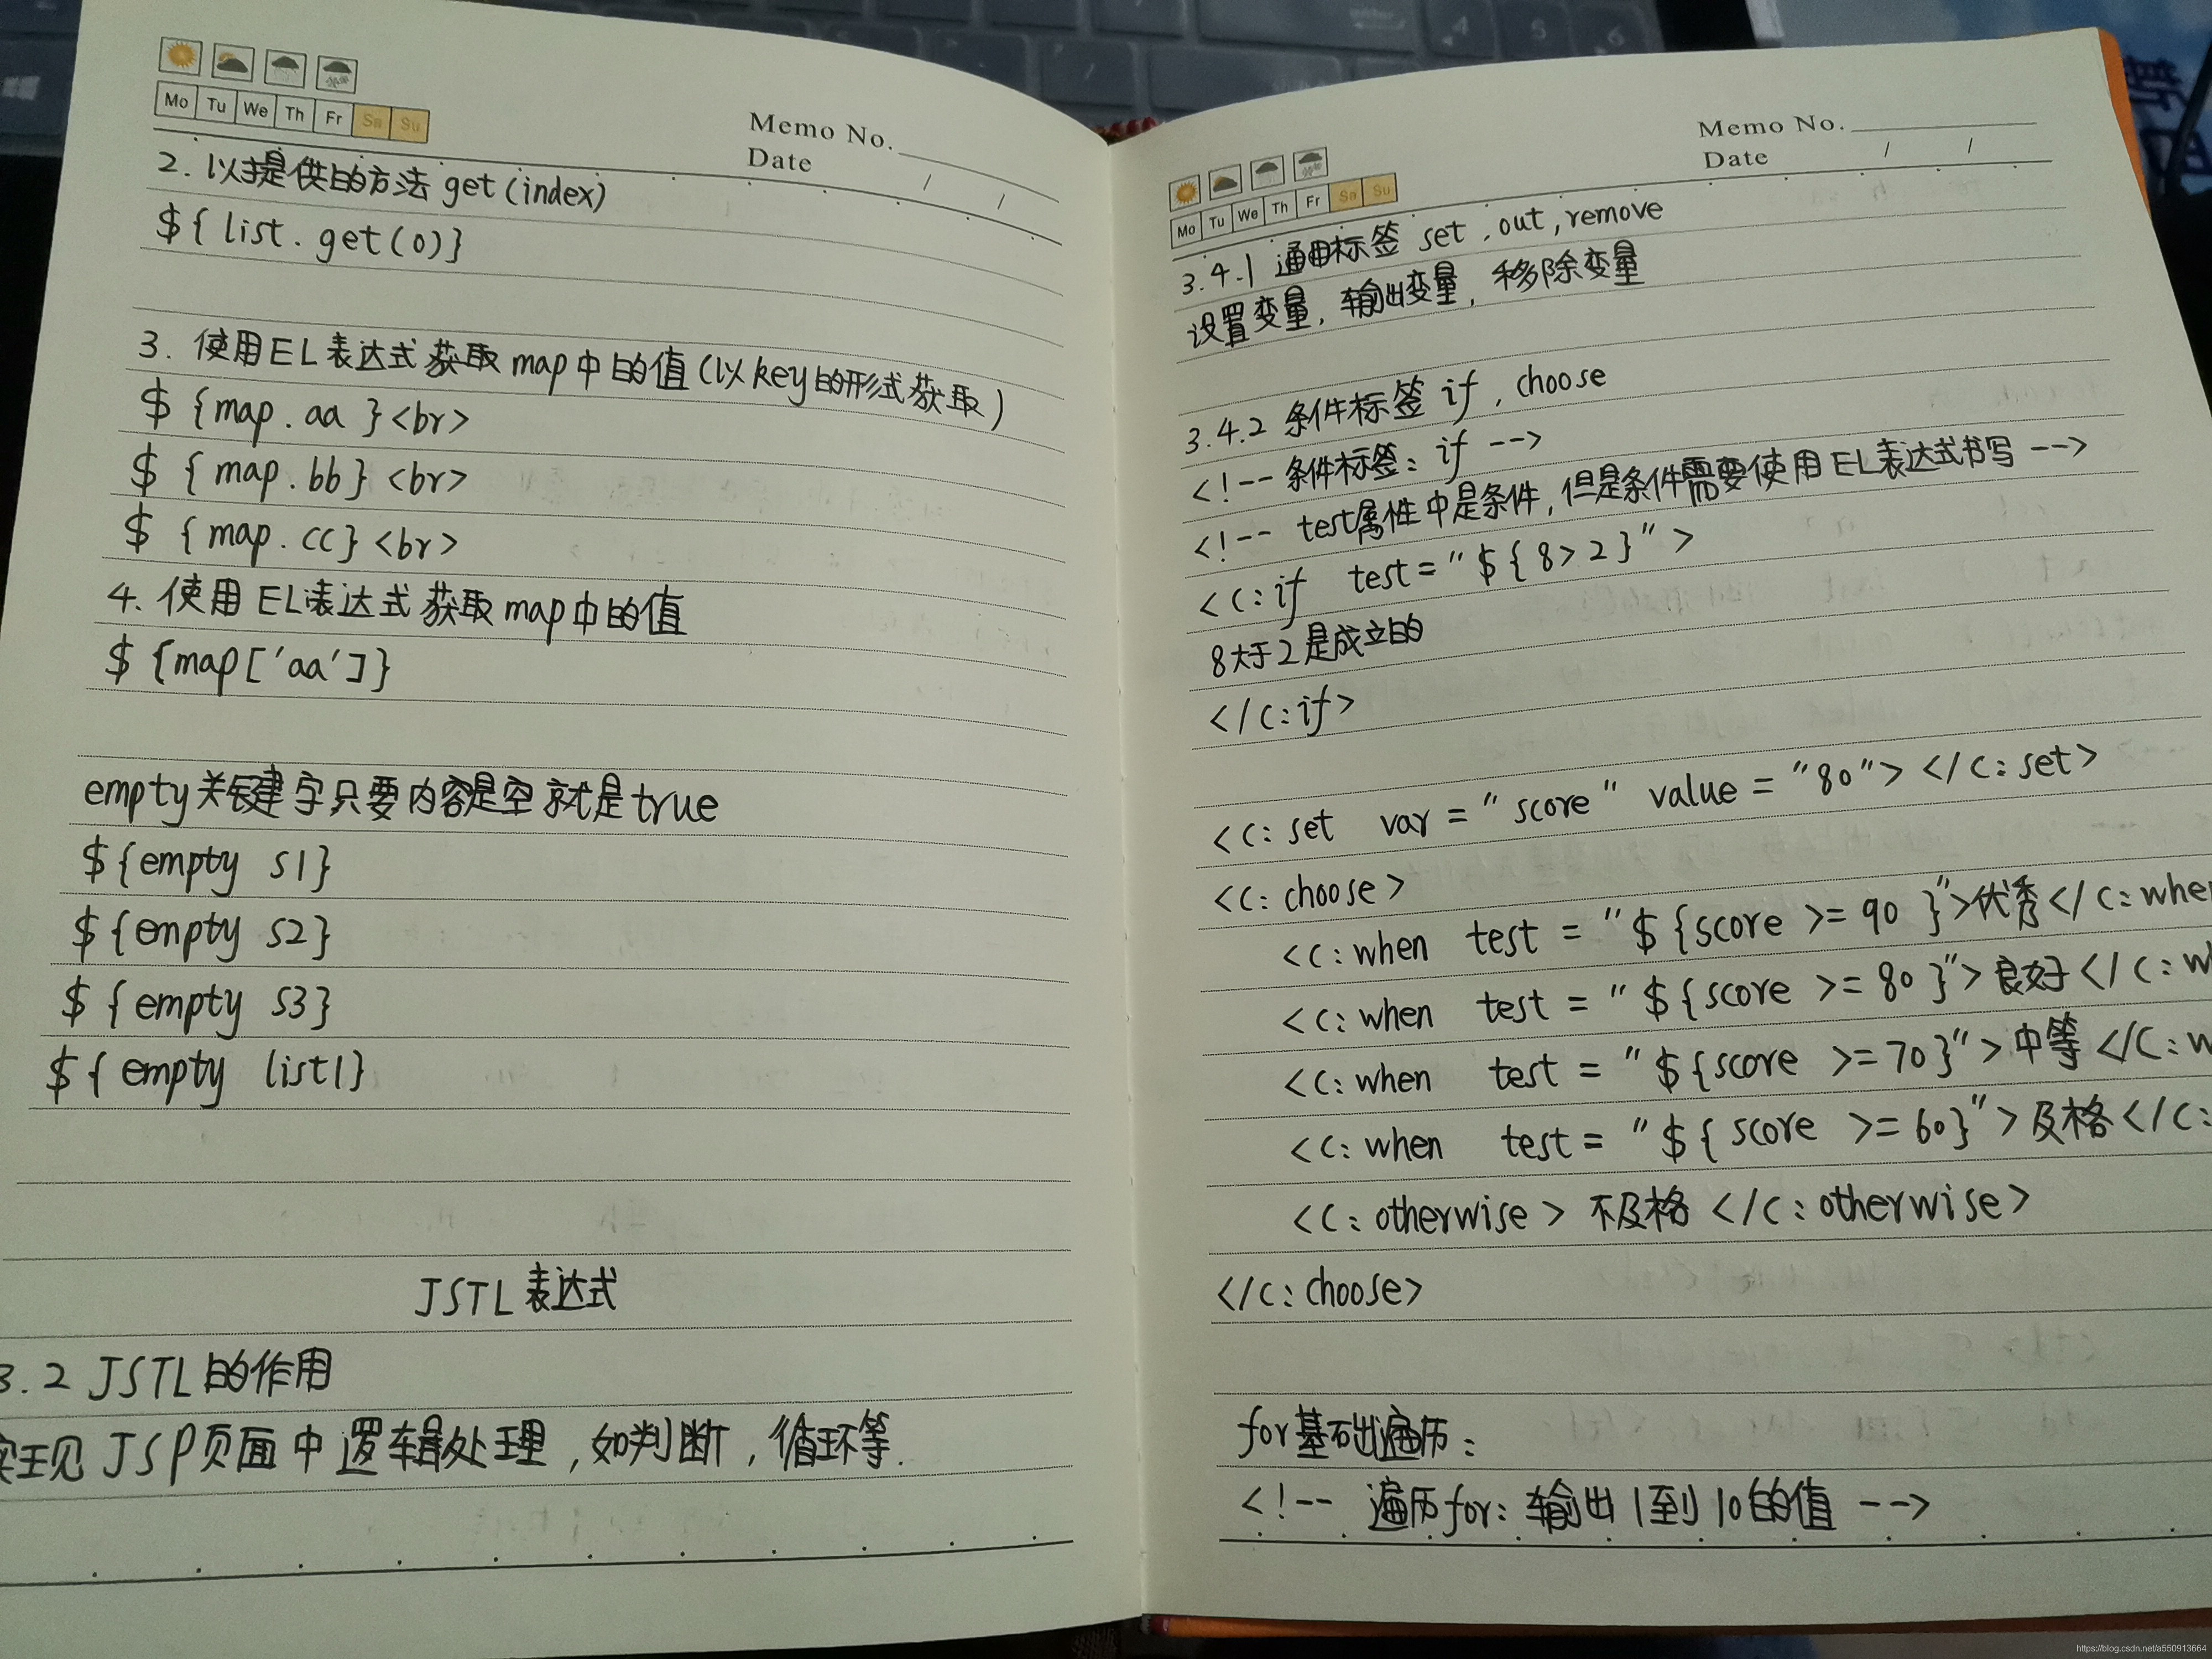 Mo Tu We Th Fr Sa Su
Memo No.
Date / /
2. 以提供的方法 get(index)
${ list. get(0)}
3. 使用EL表达式获取map中的值(以key的形式获取)
$ {map.aa }<br>
$ {map.bb}<br>
$ {map.cc}<br>
4. 使用EL表达式获取map中的值
$ {map['aa']}
empty关键字只要内容是空就是true
${empty s1}
${empty s2}
${empty s3}
${empty list1}
JSTL表达式
3.2 JSTL的作用
实现JSP页面中逻辑处理,如判断,循环等.
Mo Tu We Th Fr Sa Su
Memo No.
Date / /
3.4.1 通用标签 set,out,remove
设置变量,输出变量,移除变量
3.4.2 条件标签 if,choose
<!-- 条件标签: if -->
<!-- test属性中是条件,但是条件需要使用EL表达式书写 -->
<c:if test="${8>2}">
8大于2是成立的
</c:if>
<c:set var="score" value="80"></c:set>
<c:choose>
<c:when test="${score >=90 }">优秀</c:whe
<c:when test="${score >=80 }">良好</c:w
<c:when test="${score >=70}">中等</c:w
<c:when test="${score >=60}">及格</c:
<c:otherwise> 不及格 </c:otherwise>
</c:choose>
for基础遍历:
<!-- 遍历for: 输出1到10的值 -->
https://blog.csdn.net/a550913664